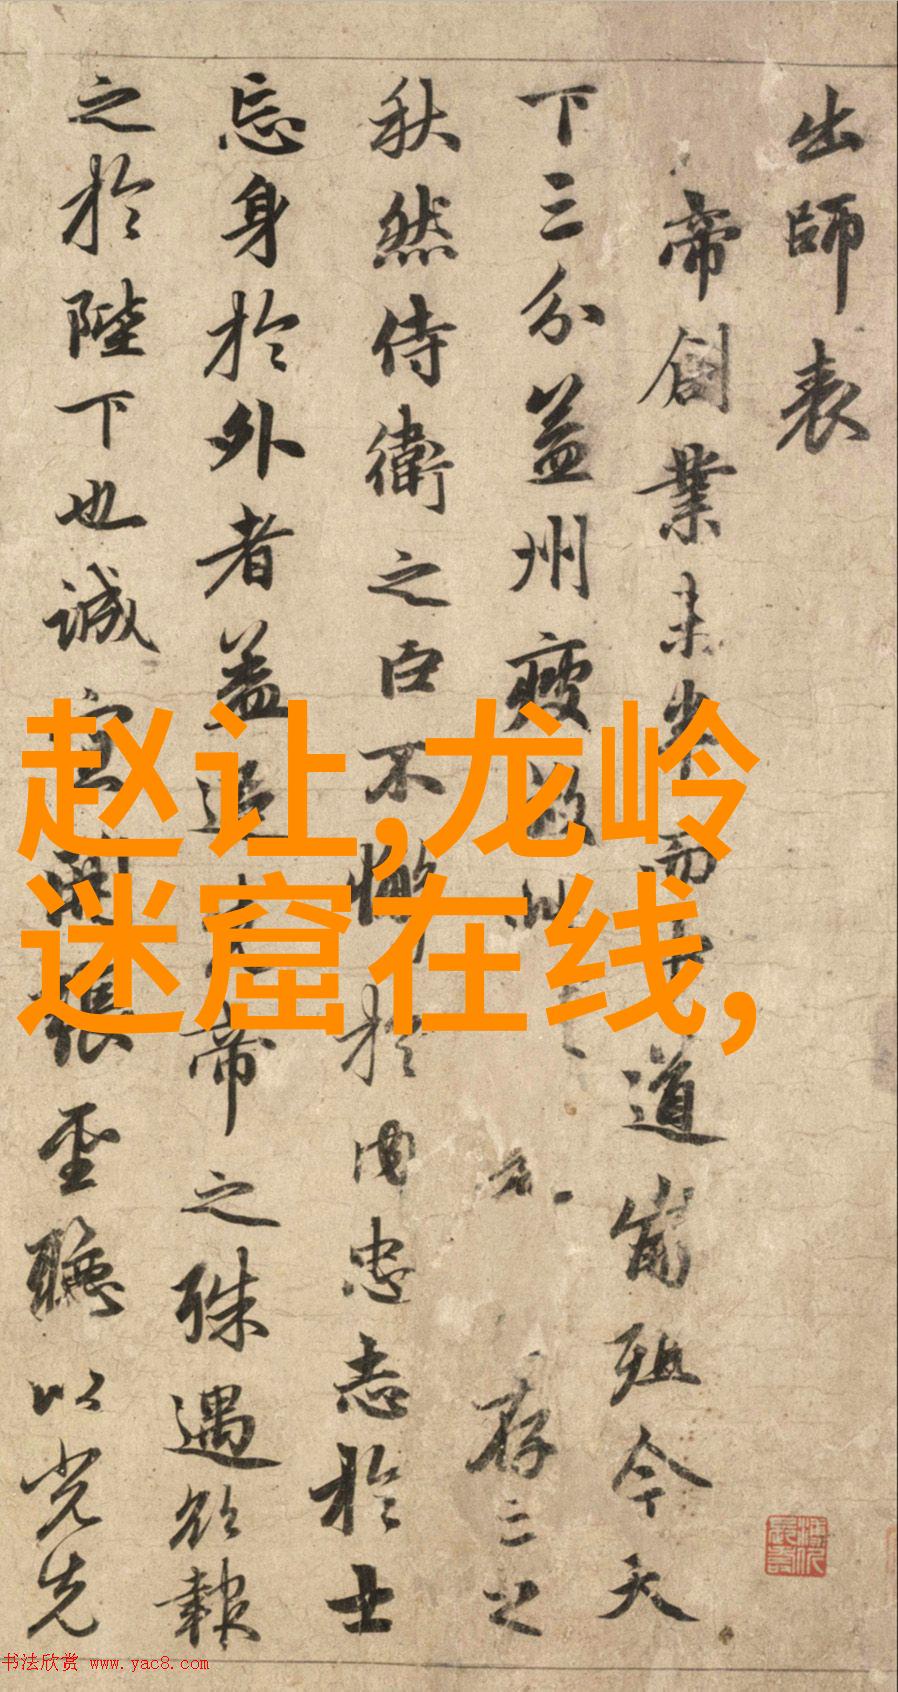 出師表
帝創業未半而中道崩殂今天
下三分益州疲敝此存亡之
秋然侍衛之臣不懈於内忠志於士
忘身於外者蓋追先帝之殊遇欲報
之於陛下也誠宜開張聖聽以光先
赵让,龙岭
迷窟在线,
书法欣赏 www.yac8.com